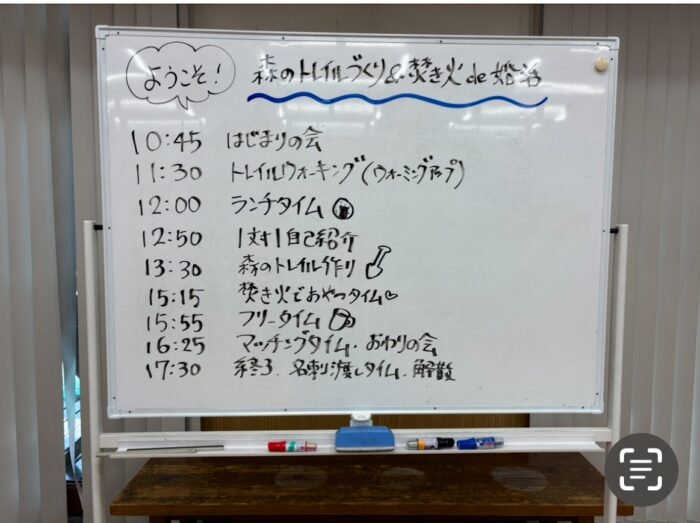 ようこそ!
森のトレイルづくり&焚き火de婚活
10:45 はじまりの会
11:30 トレイルウォーキング(ウォーミングアップ)
12:00 ランチタイム
12:50 1対1自己紹介
13:30 森のトレイル作り
15:15 焚き火でおやつタイム♡
15:55 フリータイム
16:25 マッチングタイム・おわりの会
17:30 終了、名刺渡しタイム、解散